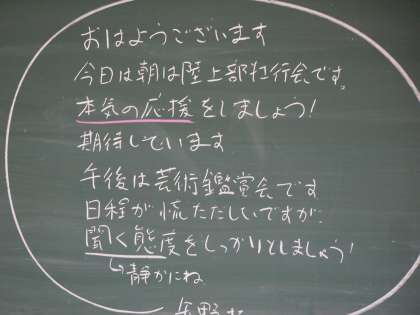 おはようございます
今日は朝は陸上部壮行会です。
本気の応援をしましょう!
期待しています
午後は芸術鑑賞会です
日程が慌ただしいですが、
聞く態度をしっかりとしましょう!
静かにね